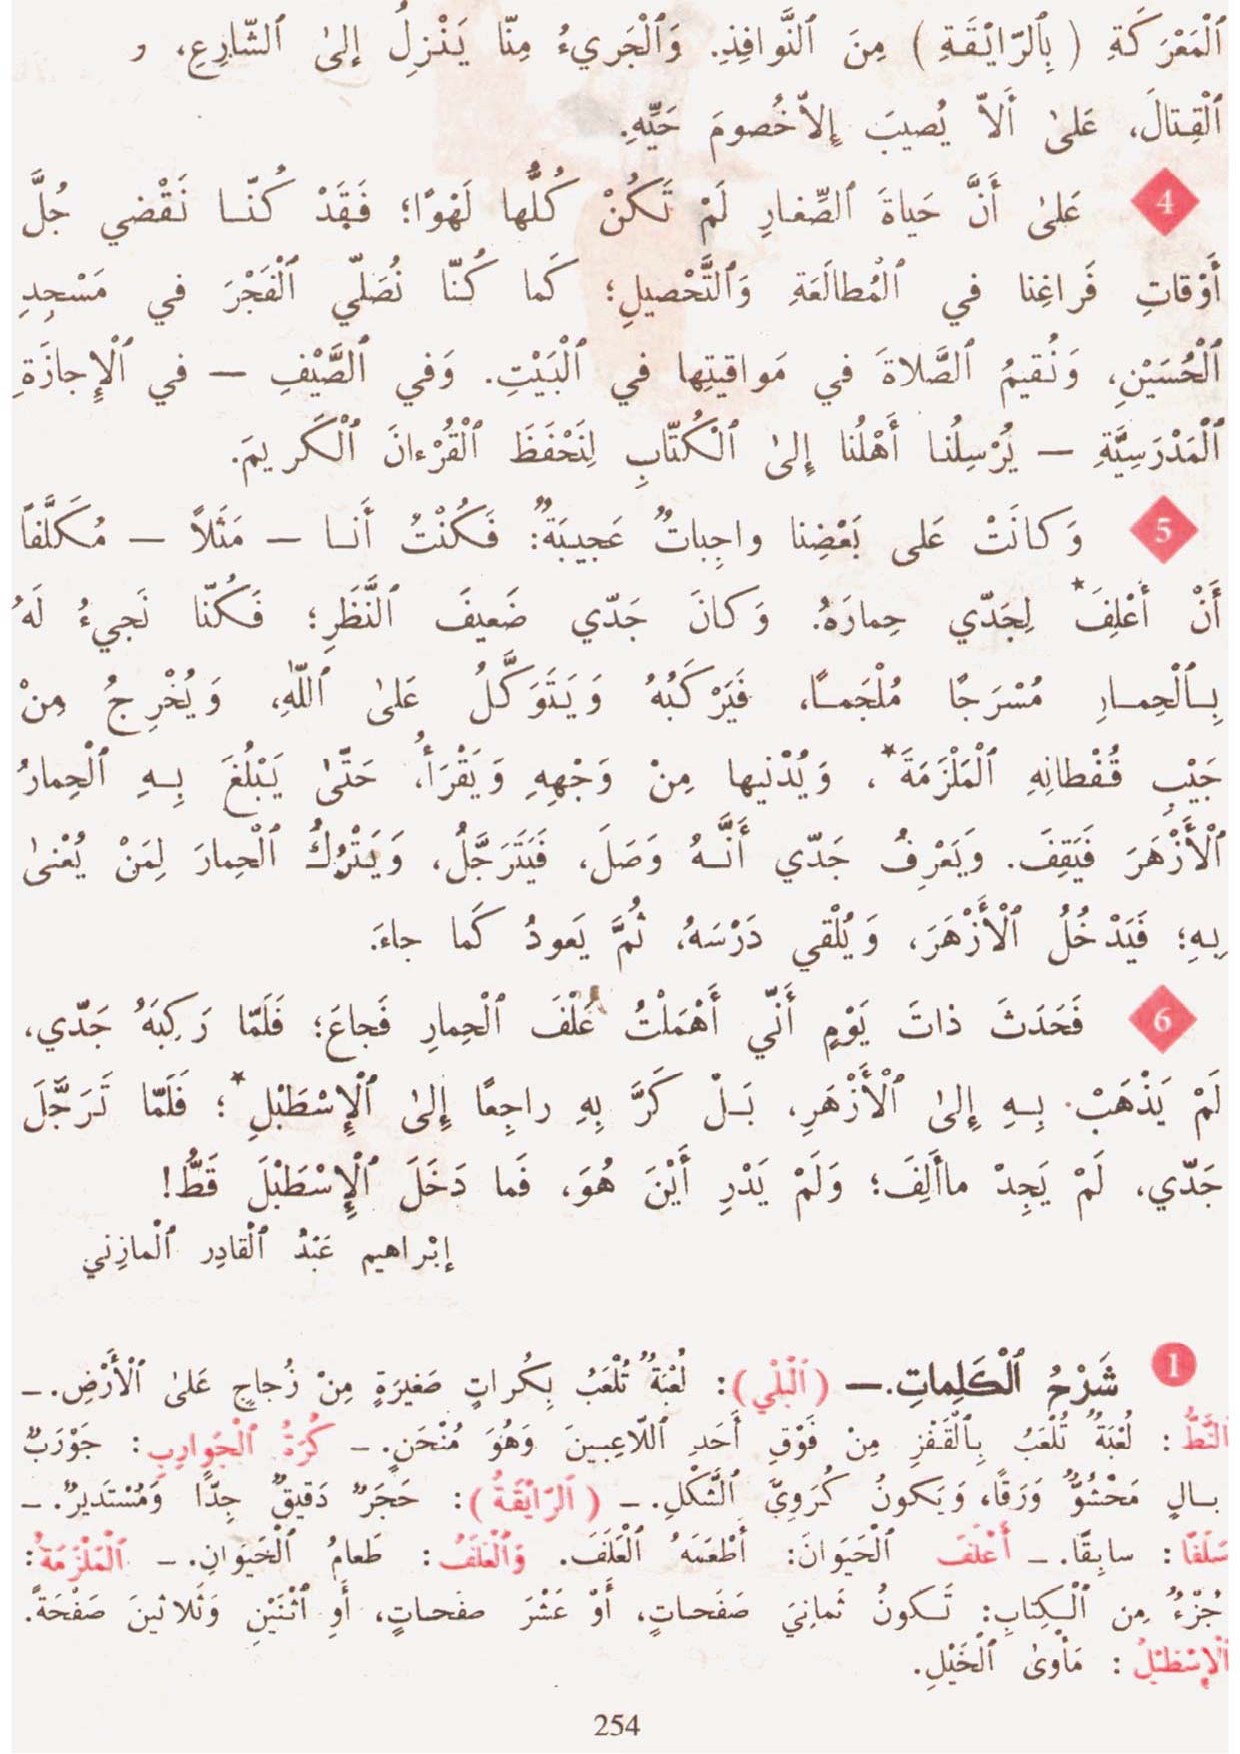 ٱلْمَعْرَكَةِ ( بِٱلرّايْقَةِ ) مِنَ ٱلنَّوافِذِ. وَٱلْجَريءُ مِنّا يَنْزِلُ إِلىٰ ٱلشّارِعِ، و
ٱلْقِتالَ، عَلىٰ أَلاّ يُصيبَ إِلاّخُصومَ حَيِّهِ.
4 عَلىٰ أَنَّ حَياةَ ٱلصِّغارِ لَمْ تَكُنْ كُلُّها لَهْوًا؛ فَقَدْ كُنّا نَقْضي جُلَّ
أَوْقاتِ فَراغِنا في ٱلْمُطالَعَةِ وَٱلتَّحْصيلِ؛ كَما كُنّا نُصَلّي ٱلْفَجْرَ في مَسْجِدِ
ٱلْحُسَيْنِ، وَنُقيمُ ٱلصَّلاةَ في مَواقيتِها في ٱلْبَيْتِ. وَفي ٱلصَّيْفِ – في ٱلْإِجازَةِ
ٱلْمَدْرَسِيَّةِ – يُرْسِلُنا أَهْلُنا إِلىٰ ٱلْكُتّابِ لِنَحْفَظَ ٱلْقُرْءانَ ٱلْكَريمَ.
5 وَكانَتْ عَلى بَعْضِنا واجِباتٌ عَجيبَةٌ: فَكُنْتُ أَنا – مَثَلاً – مُكَلَّفاً
أَنْ أَعْلِفَ* لِجَدّي حِمارَهُ. وَكانَ جَدّي ضَعيفَ ٱلنَّظَرِ؛ فَكُنّا نَجيءُ لَهُ
بِٱلْحِمارِ مُسْرَجًا مُلْجَمًا، فَيَرْكَبُهُ وَيَتَوَكَّلُ عَلىٰ ٱللّٰهِ، وَيُخْرِجُ مِنْ
جَيْبِ قُفْطانِهِ ٱلْمَلْزَمَةَ*، وَيُدْنيها مِنْ وَجْهِهِ وَيَقْرَأُ، حَتّىٰ يَبْلُغَ بِهِ ٱلْحِمارُ
ٱلْأَزْهَرَ فَيَقِفَ. وَيَعْرِفُ جَدّي أَنَّهُ وَصَلَ، فَيَتَرَجَّلُ، وَيَتْرُكُ ٱلْحِمارَ لِمَنْ يُعْنىٰ
بِهِ؛ فَيَدْخُلُ ٱلْأَزْهَرَ، وَيُلْقي دَرْسَهُ، ثُمَّ يَعودُ كَما جاءَ.
6 فَحَدَثَ ذاتَ يَوْمٍ أَنّي أَهْمَلْتُ عَلْفَ ٱلْحِمارِ فَجاعَ؛ فَلَمّا رَكِبَهُ جَدّي،
لَمْ يَذْهَبْ بِهِ إِلىٰ ٱلْأَزْهَرِ، بَلْ كَرَّ بِهِ راجِعًا إِلىٰ ٱلْإِسْطَبْلِ*؛ فَلَمّا تَرَجَّلَ
جَدّي، لَمْ يَجِدْ ماأَلِفَ؛ وَلَمْ يَدْرِ أَيْنَ هُوَ، فَما دَخَلَ ٱلْإِسْطَبْلَ قَطُّ!
إبْراهيم عَبْدُ ٱلْقادِر ٱلْمازِني
1 شَرْحُ ٱلْكَلِماتِ.— (ٱلْبِلْي): لُعْبَةٌ تُلْعَبُ بِكُراتٍ صَغيرَةٍ مِنْ زُجاجٍ عَلىٰ ٱلْأَرْضِ.–
ٱلنَّطُّ: لُعْبَةٌ تُلْعَبُ بِٱلْقَفْزِ مِنْ فَوْقِ أَحَدِ ٱللّاعِبينَ وَهُوَ مُنْحَنٍ.– كُرَةُ ٱلْجَوارِبِ: جَوْرَبٌ
بالٍ مَحْشُوٌّ وَرَقًا، وَيَكونُ كُرَوِيَّ ٱلشَّكْلِ.– (ٱلرّايْقَةُ): حَجَرٌ دَقيقٌ جِدًّا وَمُسْتَديرٌ.–
سَلَفًا: سابِقًا.– أَعْلَفَ ٱلْحَيَوانَ: أَطْعَمَهُ ٱلْعَلَفَ. وَٱلْعَلَفُ: طَعامُ ٱلْحَيَوانِ.– ٱلْمَلْزَمَةُ:
جُزْءٌ مِن ٱلْكِتابِ: تَكونُ ثَمانِيَ صَفَحاتٍ، أَوْ عَشْرَ صفحاتٍ، أَوِ ٱثْنَيْنِ وَثَلاثينَ صَفْحَةً.
ٱلْإسْطَبْلُ: مَأْوىٰ ٱلْخَيْلِ.
254